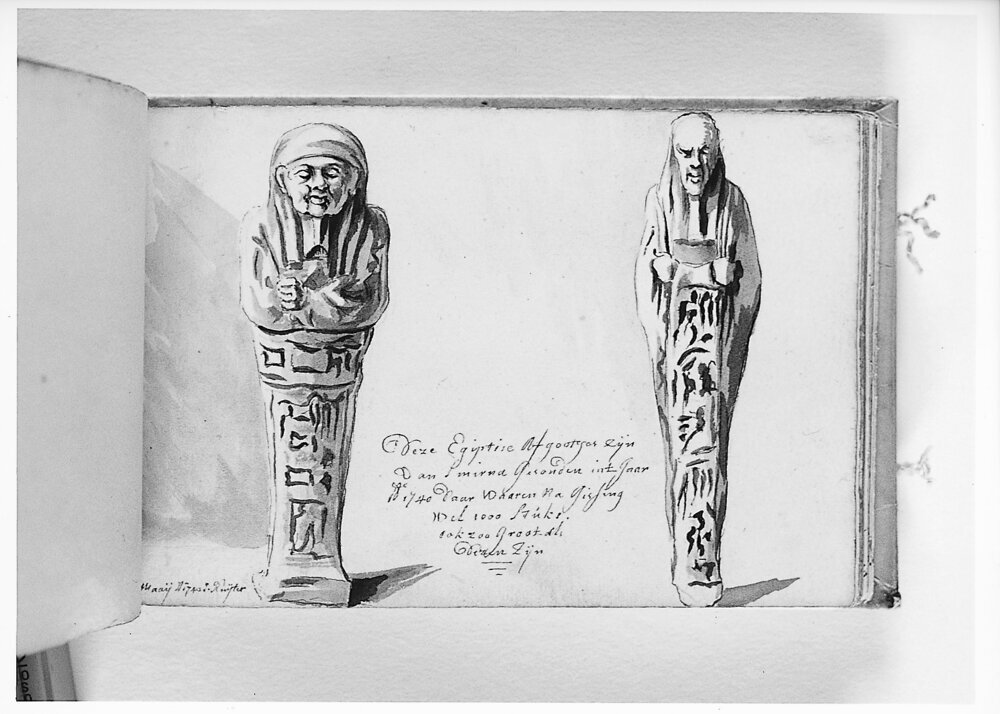 Deze Egiptise Afgootges zyn
Van Smirna Gesonden int Jaar
Ao 1740 Daar Waaren Na Gissing
Wel 1000 Stuks.
ook zoo Groot als
Deezen Zyn
Maaÿ Ruÿter